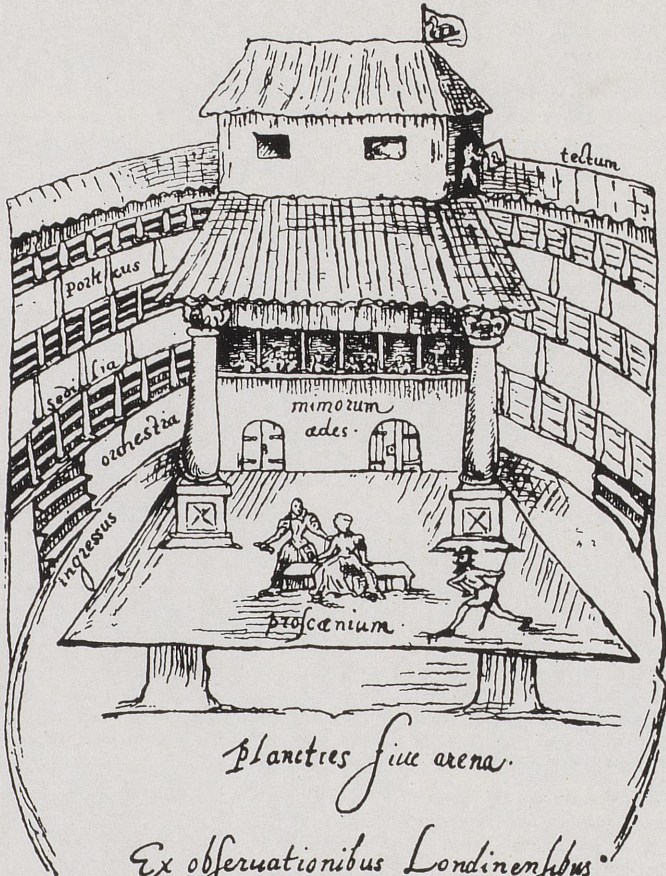 tectum
porticus
sedilia
orchestra
mimorum
ædes.
ingressus
proscænium.
planities siue arena.
Ex obseruationibus Londinensibus